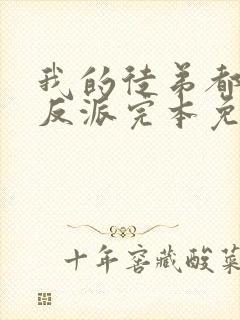 我的徒弟都
反派完本免
十年窖藏酸菜